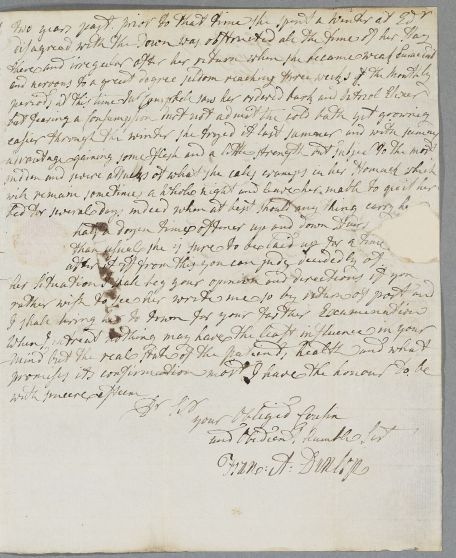 two years past prior to that time she spent a winter at Edr
disagreed with the Town was obstructed all the time of her stay
there and irregular after her return when she became weak
and nervous to a great degree seldom reaching three weeks of the monthly
period, at this time Dr Campbell saw her ordered bark and Vitriol Elixer
but fearing a consumption wou'd not admit the cold bath yet growing
easier through the winter she tryed it last summer and with
advantage gaining some flesh and a little strength but subject to the most
sudden and severe attacks of what she calls cramps in her stomach which
will remain sometimes a whole night and leave her unable to quit her
bed for several days indeed when at best should any thing carry her
half a dozen times oftener up and down Stairs
than usual she is sure to be laid up for a time
after it If from this you can judge decidedly of
her situation I shall beg your opinion and directions if you
rather wish to see her write me so by return of post and
I shall bring her to town for your further Examination
When I intreat nothing may have the least influence in your
mind but the real state of the patients health and what
promises its confirmation most I have the honour to be
with sincere esteem
Dr Sir
your Obliged Cousin
and Obedient humble Sert
Fran: A: Dunlop